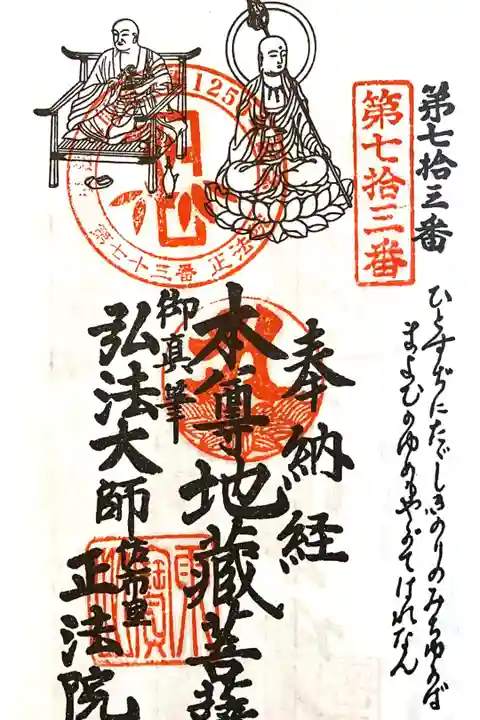 第七拾三番
第七拾三番
ひとすぢにたゞしきのりのみちゆかば
まよひのゆめもやがてはれなん
奉納経
本尊地蔵菩薩
御真筆
弘法大師
佐布里
正法院
125
第七十三番 正法院